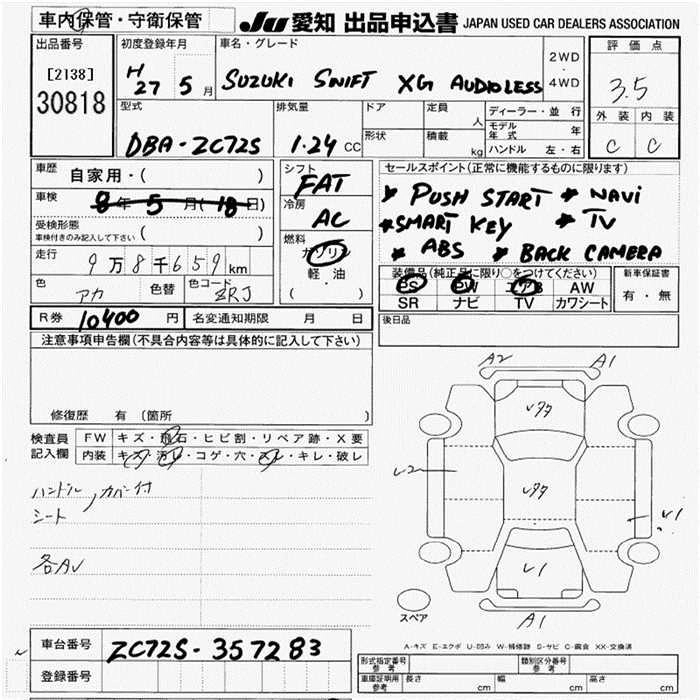 車内保管・守衛保管 JU 愛知 出品申込書 JAPAN USED CAR DEALERS ASSOCIATION
出品番号 初度登録年月 車名・グレード 評価点
[2138] H27 5月 SUZUKI SWIFT XG AUDIOLESS 2WD・4WD 3.5
30818 外装 内装
型式 排気量 ドア 定員 人 ディーラー・並行
モデル年式 年
DBA-ZC72S 1.24 CC 形状 積載 kg ハンドル 左・右 C C
車歴 自家用・( ) シフト FAT セールスポイント(正常に機能するものに限ります)
車検 8年5月(18日) 冷房 AC PUSH START * NAVI
受検形態 ( ) *SMART KEY * TV
車検付きのみ記入して下さい 燃料 ガソリン * ABS * BACK CAMERA
走行 9万8千659km 軽・油
装備品(純正品に限り○をつけてください) 新車保証書
色 アカ 色替 色コード ZRJ ( ) PS PW エアB AW 有・無
SR ナビ TV カワシート
R券 10400 円 名変通知期限 月 日 後日品
注意事項申告欄(不具合内容等は具体的に記入して下さい)
修復歴 有 (箇所 )
検査員 FW キズ・飛石・ヒビ割・リペア跡・X要
記入欄 内装 キズ・汚レ・コゲ・穴・スレ・キレ・破レ
A2 A1
Uタタ
U2
Uタタ
U1
U1
A1
ハンドル, カバー付
シート
各AU
スペア
A-キズ E-エクボ U-凹み W-補修跡 S-サビ C-腐食 XX-交換済
車台番号 ZC72S-357283
登録番号
形式指定番号 参考 類別区分番号 参考
車庫証明用 参考 長さ cm 幅 cm 高さ cm